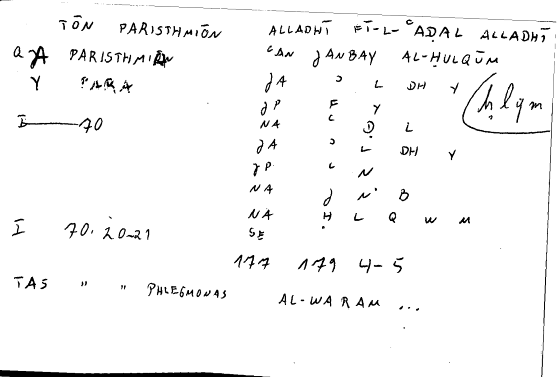 TŌN PARISTHMIŌN ALLADHĪ FĪ-L-ʿAḌAL ALLADHĪ
a A PARISTHMIŌN ʿAN JANBAY AL-ḤULQŪM
Y PARA JA ʾ L DH Y
JP F Y ḥlqm
I 70 NA ʿ Ḍ L
JA ʾ L DH Y
JP ʿ N
NA J N B
NA Ḥ L Q W M
I 70. 20-21 SE
177 179 4-5
TAS " " PHLEGMONAS AL-WARAM ...